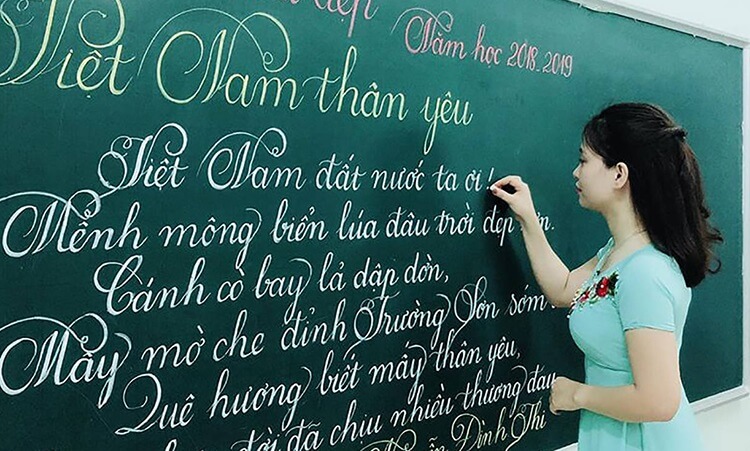 đẹp
Năm học 2018-2019
Việt Nam thân yêu
Việt Nam đất nước ta ơi!
Mênh mông biển lúa đâu trời đẹp
Cánh cò bay lả dập dờn,
Mây mờ che đỉnh Trường Sơn sớm
Quê hương biết mấy thân yêu,
đời đã chịu nhiều thương đau
Đình Thi